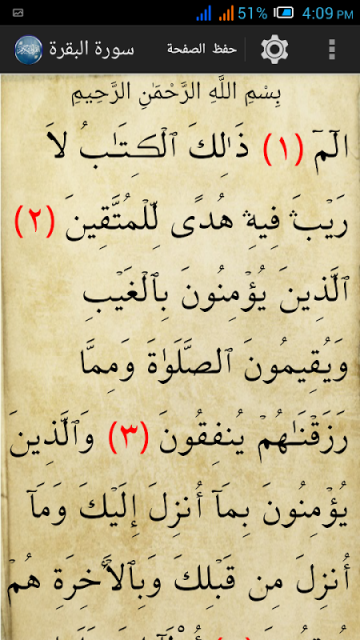 51% 4:09 PM
سورة البقرة حفظ الصفحة
بِسْمِ اللَّهِ الرَّحْمَٰنِ الرَّحِيمِ
الٓمٓ (١) ذَٰلِكَ ٱلْكِتَٰبُ لَا
رَيْبَ ۛ فِيهِ ۛ هُدًى لِّلْمُتَّقِينَ (٢)
ٱلَّذِينَ يُؤْمِنُونَ بِٱلْغَيْبِ
وَيُقِيمُونَ ٱلصَّلَوٰةَ وَمِمَّا
رَزَقْنَٰهُمْ يُنفِقُونَ (٣) وَٱلَّذِينَ
يُؤْمِنُونَ بِمَآ أُنزِلَ إِلَيْكَ وَمَآ
أُنزِلَ مِن قَبْلِكَ وَبِٱلْأَخِرَةِ هُمْ